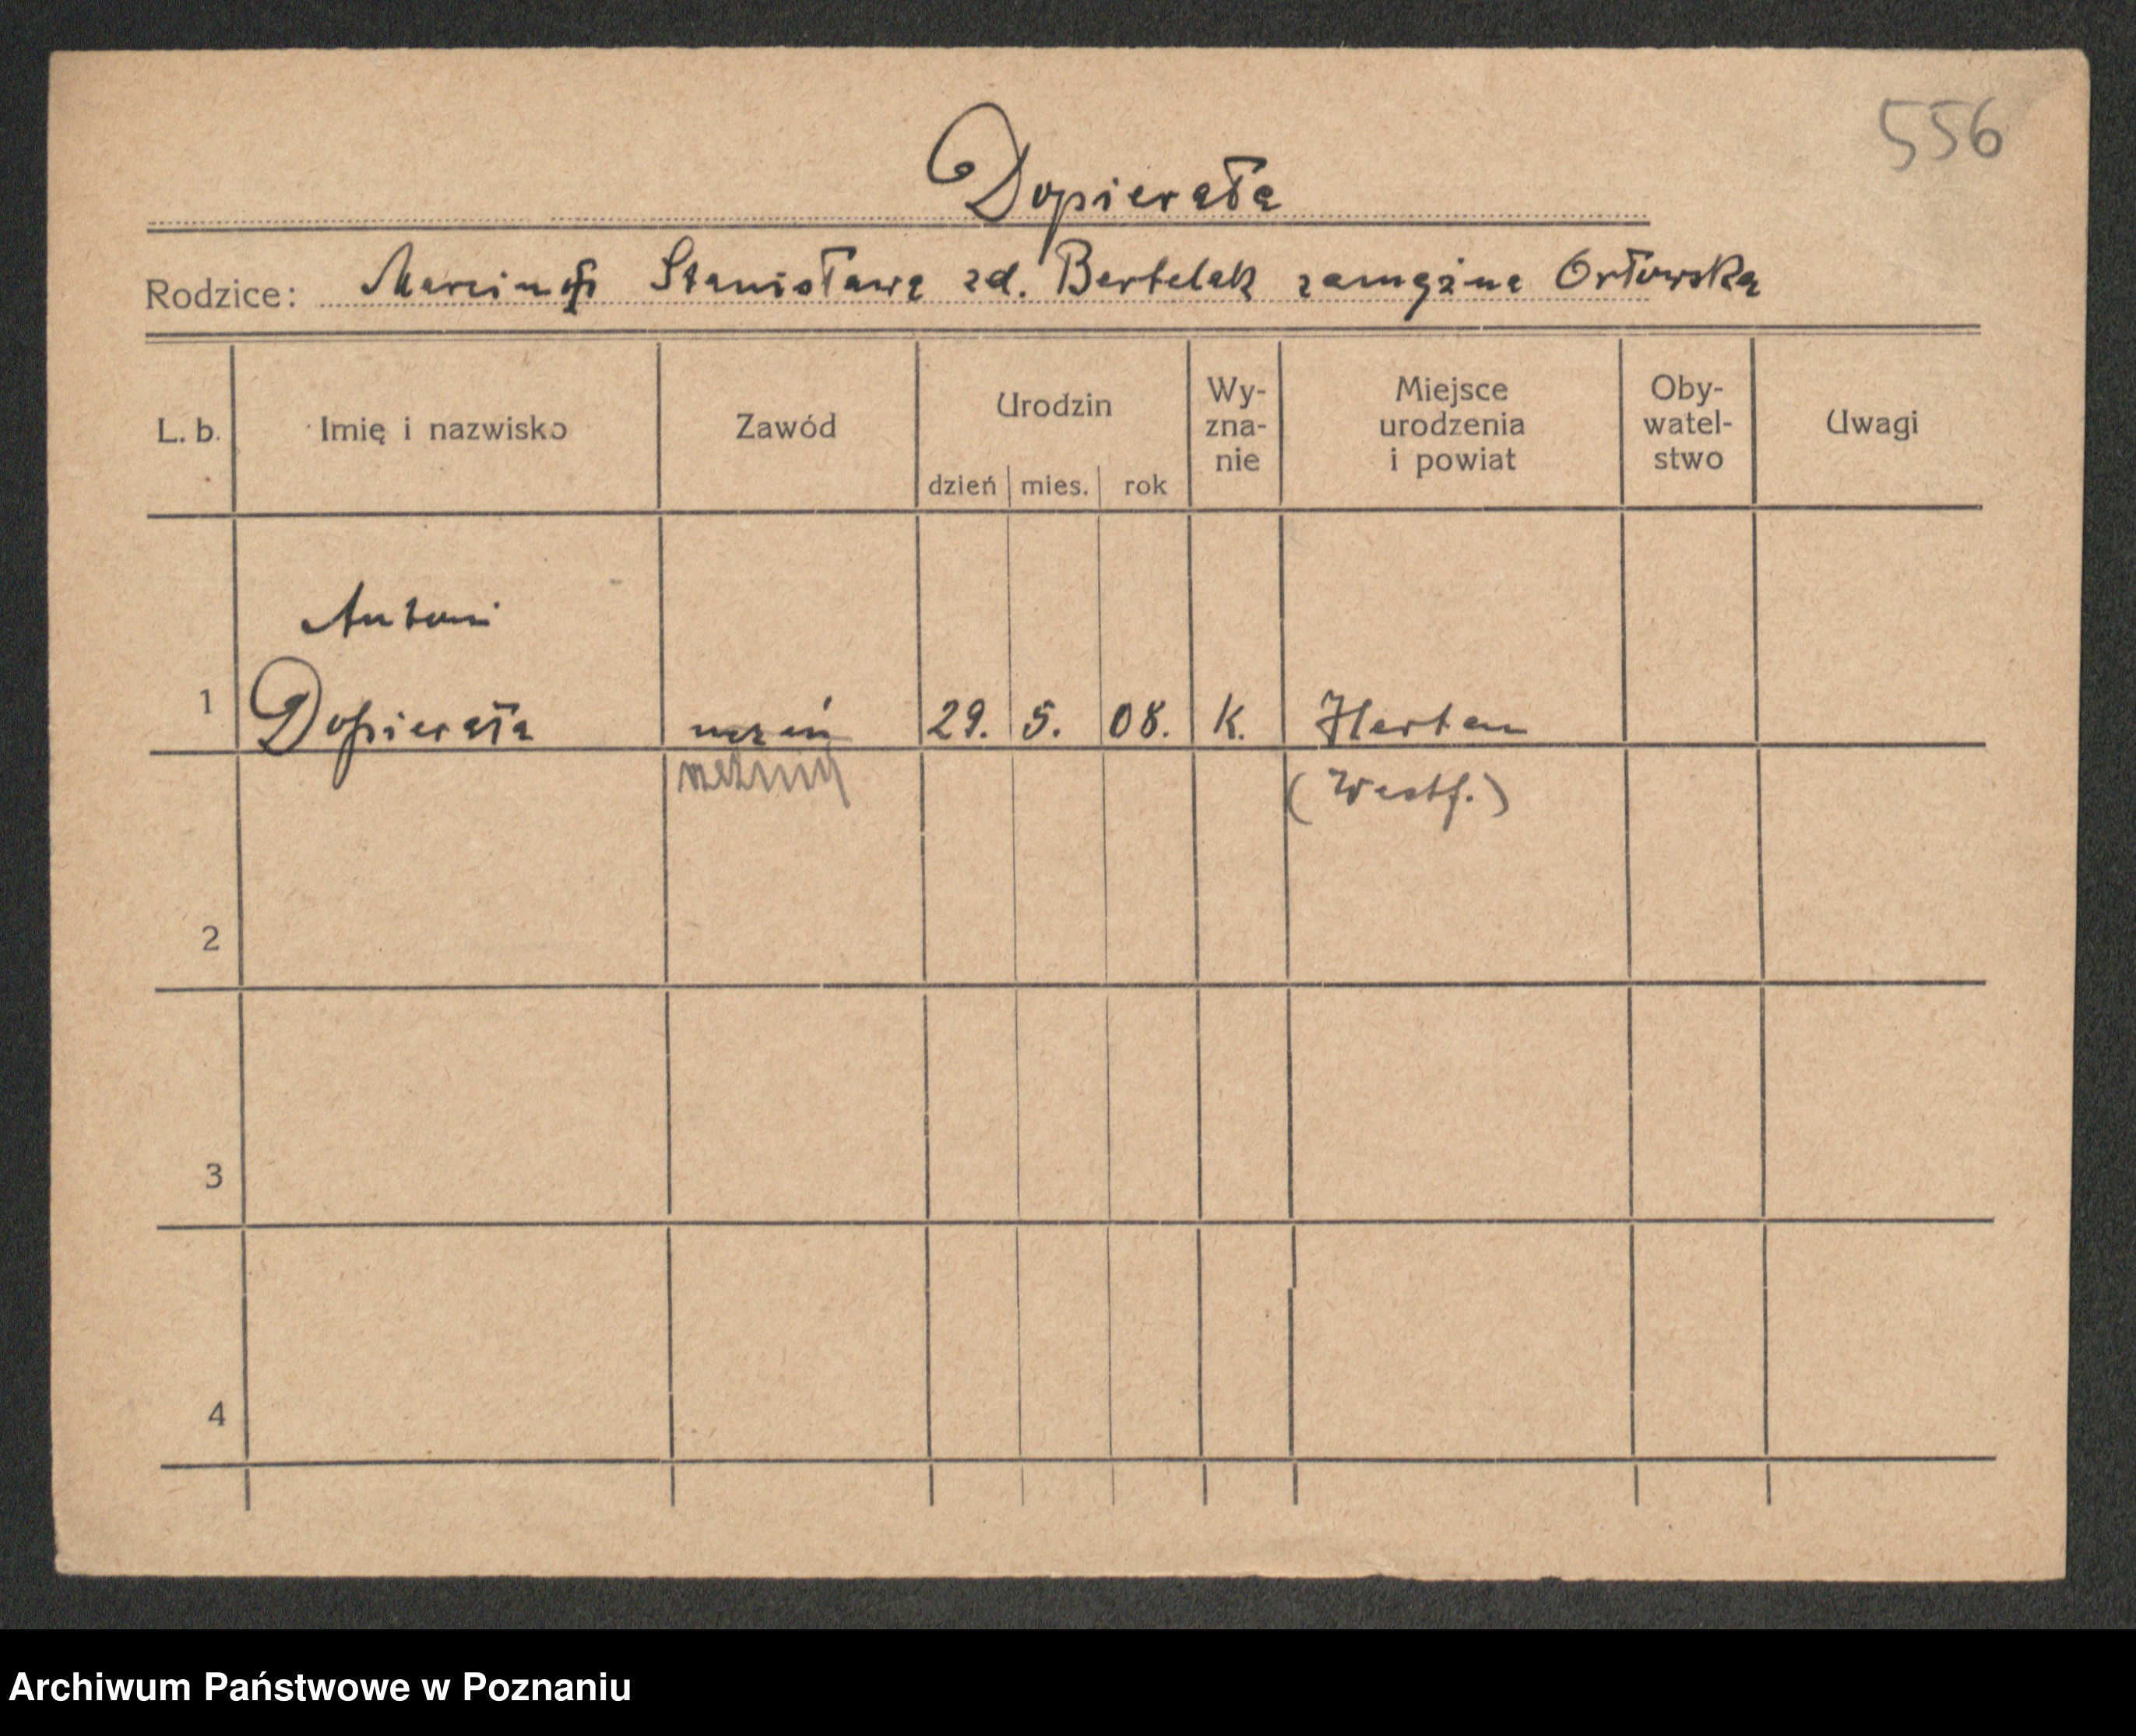 556
Dopierała
Rodzice: Marcin i Stanisława zd. Bartelak zamężna Orłowska
L. b. Imię i nazwisko Zawód Urodzin dzień mies. rok Wy-zna-nie Miejsce urodzenia i powiat Oby-watel-stwo Uwagi
Antoni
1 Dopierała uczeń 29. 5. 08. K. Herten
(Westf.)
2
3
4
Archiwum Państwowe w Poznaniu